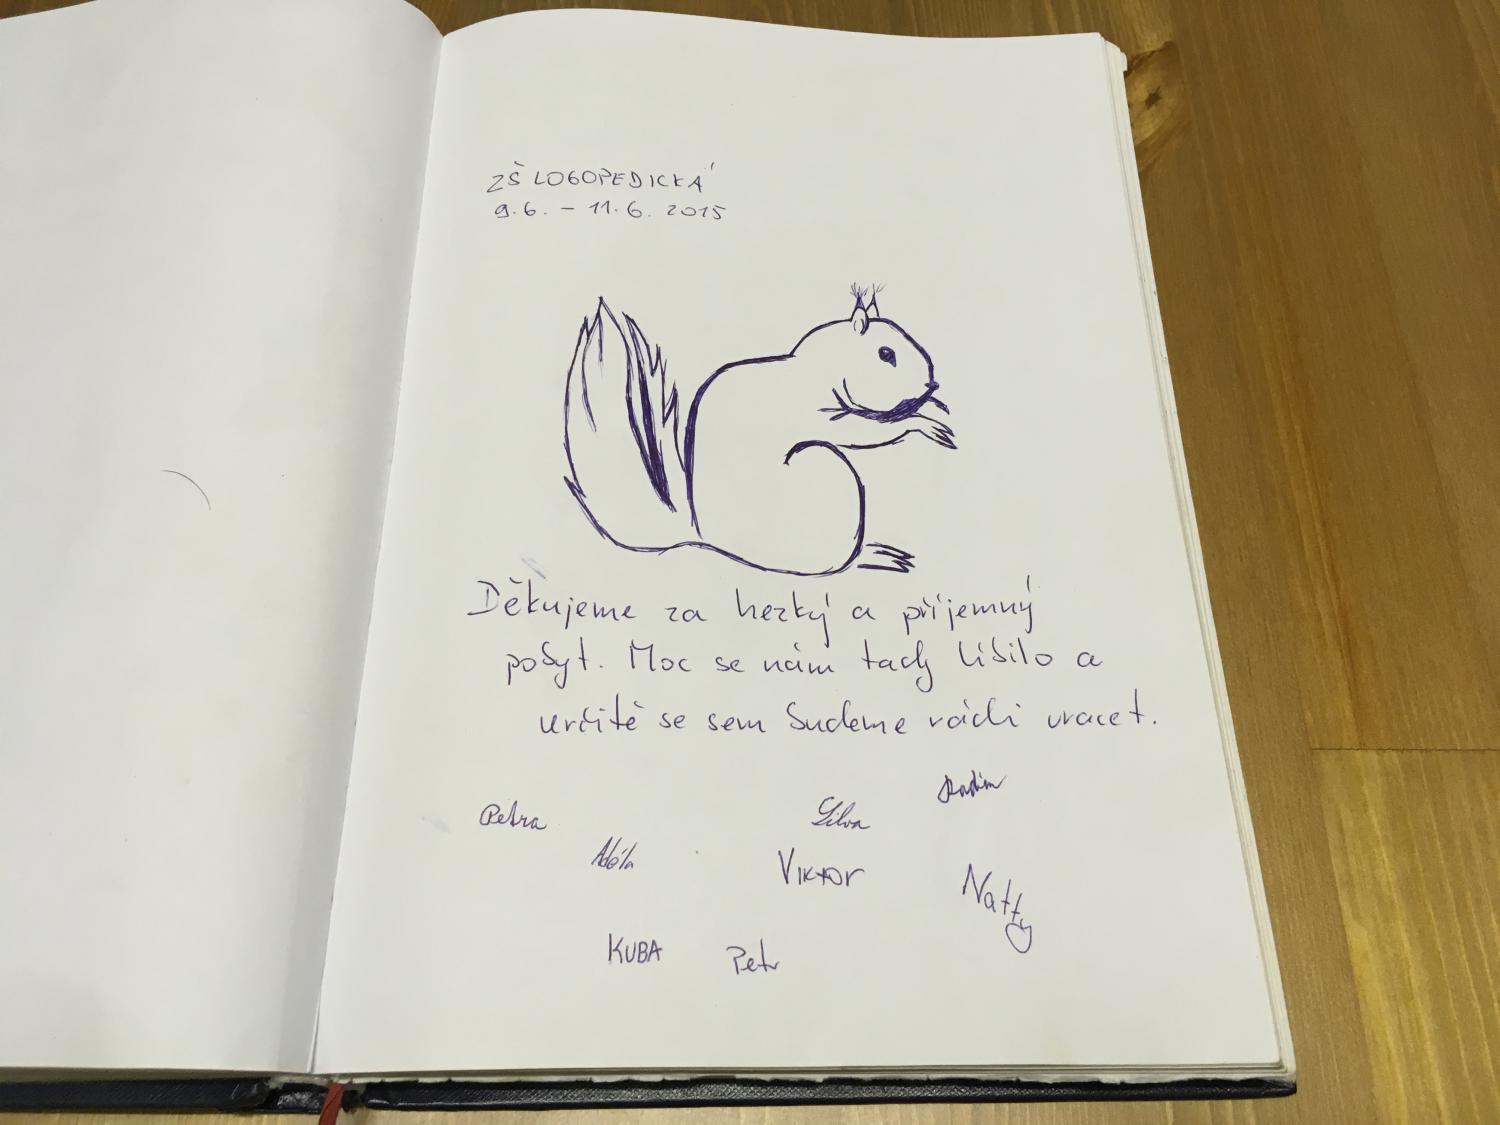 ZŠ LOGOPEDICKÁ
9.6. – 11.6. 2015
Děkujeme za hezký a příjemný
pobyt. Moc se nám tady líbilo a
určitě se sem budeme rádi vracet.
Radim
Petra
Silva
Adéla
VIKTOR
Natty
KUBA
Petr